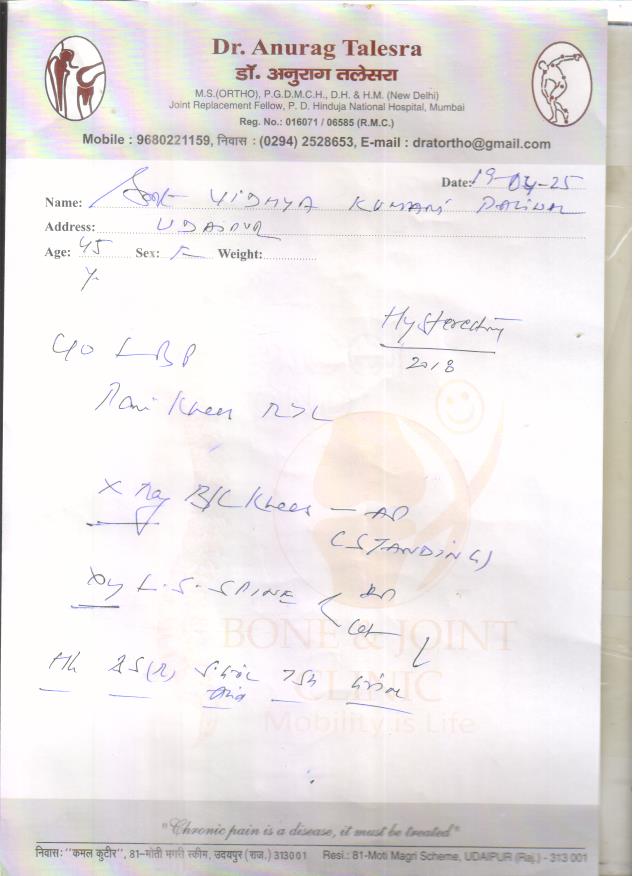 Dr. Anurag Talesra
डॉ. अनुराग तलेसरा
M.S.(ORTHO), P.G.D.M.C.H., D.H. & H.M. (New Delhi)
Joint Replacement Fellow, P. D. Hinduja National Hospital, Mumbai
Reg. No.: 016071 / 06585 (R.M.C.)
Mobile : 9680221159, निवास : (0294) 2528653, E-mail : dratortho@gmail.com
Date: 19-04-25
Name: VIDHYA KUMARI PALIWAL
Address: UDAIPUR
Age: 45 Sex: F Weight:
Y
2018
C/o LBP
Pain Knees R>L
X Ray B/L Knees - AP
(STANDING)
Xray L.S. SPINE AP
Lat
BONE & JOINT
CLINIC
Mobility is Life
Hb S. TSH
"Chronic pain is a disease, it must be treated"
निवास: "कमल कुटीर", 81-मोती मगरी स्कीम, उदयपुर (राज.) 313001 Resi.: 81-Moti Magri Scheme, UDAIPUR (Raj.) - 313 001